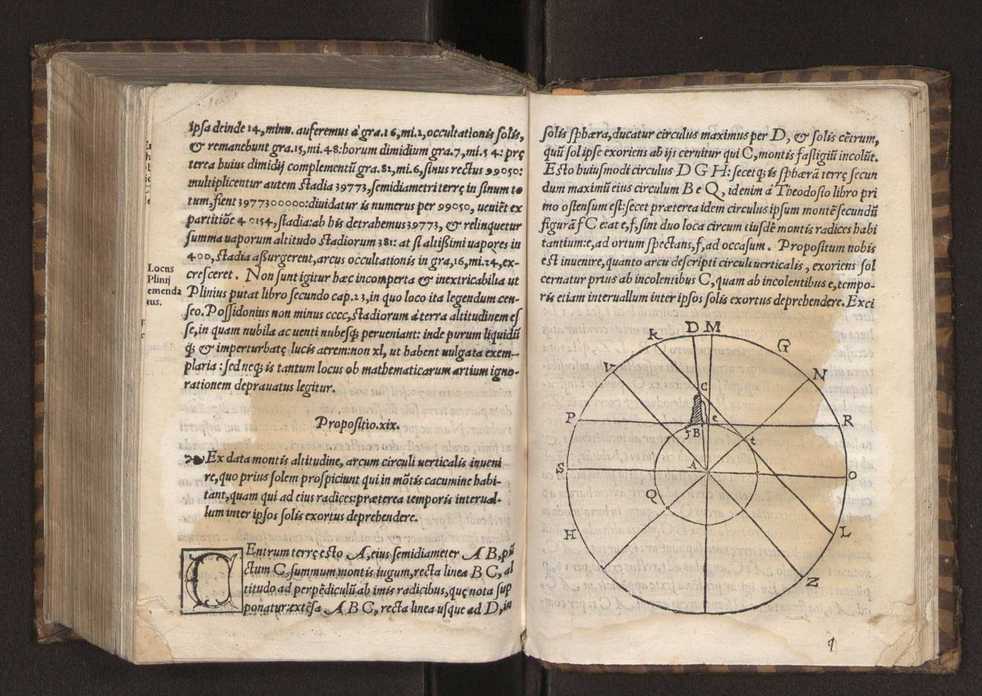 ipsa deinde 14, minu. auferemus à gra. 16, mi. 2, occultationis solis,
& remanebunt gra. 15, mi. 48: horum dimidium gra. 7, mi. 54: prę
terea huius dimidij complementũ gra. 82, mi. 6, sinus rectus 99050:
multiplicentur autem stadia 39773, semidiametri terrę in sinum to
tum, fient 3977300000: diuidatur is numerus per 99050, ueniẽt ex
partitiõe 40154, stadia: ab his detrahemus 39773, & relinquetur
summa uaporum altitudo stadiorum 381: at si altissimi uapores in
400, stadia assurgerent, arcus occultationis in gra, 16, mi. 24, ex-
cresceret. Non sunt igitur hæc incomperta & inextricabilia ut
Plinius putat libro secundo cap. 23, in quo loco ita legendum cen-
seo. Possidonius non minus cccc, stadiorum à terra altitudinem es
se, in quam nubila ac uenti nubesq́; perueniant: inde purum liquidũ
q́; & imperturbatę lucis aerem: non xl, ut habent uulgata exem-
plaria: sed neq; is tantum locus ob mathematicarum artium igno-
rationem deprauatus legitur.
Locus
Plinij
emenda
tus.
Propositio. xix.
Ex data montis altitudine, arcum circuli uerticalis inueni
re, quo prius solem prospiciunt qui in mõtis cacumine habi-
tant, quam qui ad eius radices: præterea temporis interual-
lum inter ipsos solis exortus deprehendere.
CEntrum terrę esto A, eius semidiameter A B, pũ
ctum C, summum montis iugum, recta linea B C, al
titudo ad perpẽdiculũ ab imis radicibus, quę nota sup
ponatur: extẽsa A B C, recta linea usque ad D, in
solis sphæra, ducatur circulus maximus per D, & solis cẽtrum,
quũ sol ipse exoriens ab ijs cernitur qui C, montis fastigiũ incolũt.
Esto huiusmodi circulus D G H: secet q́; is sphærã terrę secun
dum maximũ eius circulum B e Q, id enim à Theodosio libro pri
mo ostensum est: secet præterea idem circulus ipsum montẽ secundũ
figurã f C e: at e, f, sint duo loca circum eiusdẽ montis radices habi
tantium: e, ad ortum spectans, f, ad occasum. Propositum nobis
est inuenire, quanto arcu descripti circuli uerticalis, exoriens sol
cernatur prius ab incolentibus C, quam ab incolentibus e, tempo-
ris etiam interuallum inter ipsos solis exortus deprehendere. Exci
D M
K
G
V
N
C
P
e
R
f B
t
A
S
O
Q
H
L
Z
q